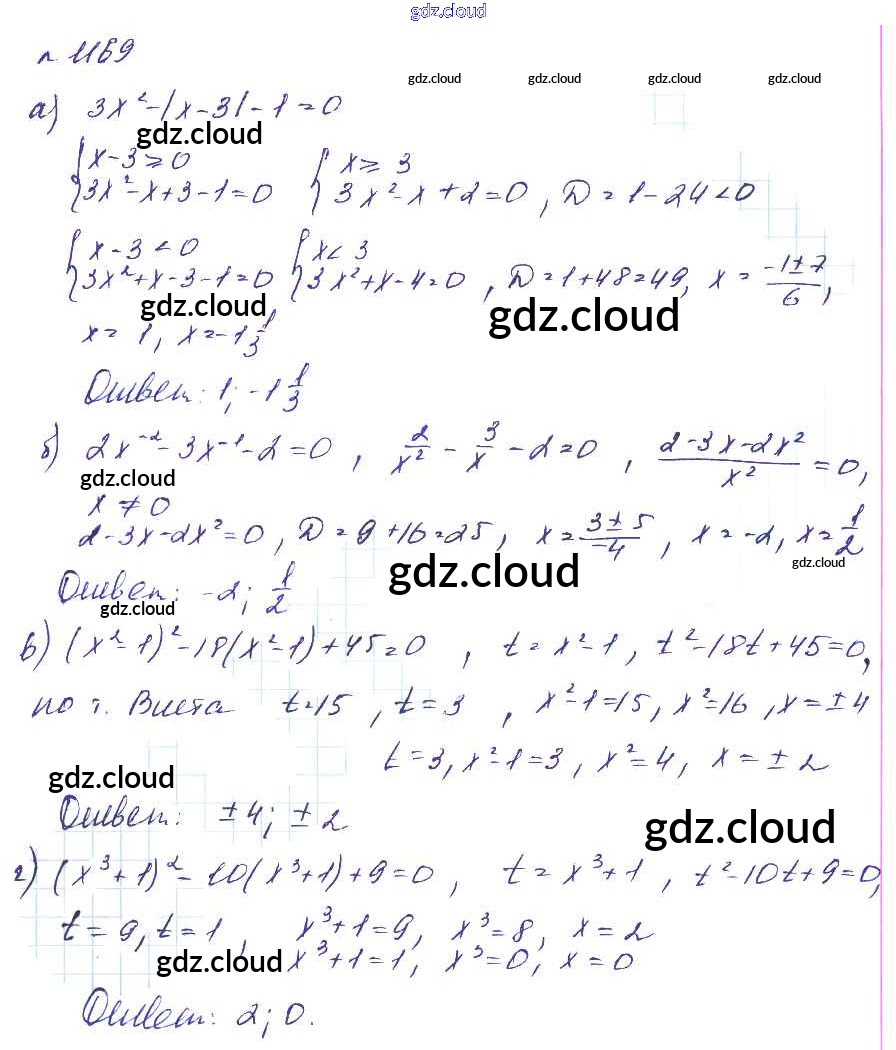 gdz.cloud
n 1169
gdz.cloud gdz.cloud gdz.cloud gdz.cloud
а) 3x² - |x - 3| - 1 = 0
gdz.cloud
{x - 3 ≥ 0 {x ≥ 3
{3x² - x + 3 - 1 = 0 {3x² - x + 2 = 0, D = 1 - 24 < 0
{x - 3 < 0 {x < 3
{3x² + x - 3 - 1 = 0 {3x² + x - 4 = 0, D = 1 + 48 = 49, x = (-1 ± 7)/6,
gdz.cloud gdz.cloud
x = 1, x = -1 1/3
Ответ: 1; -1 1/3
б) 2x⁻² - 3x⁻¹ - 2 = 0, 2/x² - 3/x - 2 = 0, (2 - 3x - 2x²)/x² = 0,
gdz.cloud
x ≠ 0
2 - 3x - 2x² = 0, D = 9 + 16 = 25, x = (3 ± 5)/-4, x = -2, x = 1/2
gdz.cloud gdz.cloud
Ответ: -2; 1/2
gdz.cloud
в) (x² - 1)² - 18(x² - 1) + 45 = 0, t = x² - 1, t² - 18t + 45 = 0,
по т. Виета t = 15, t = 3, x² - 1 = 15, x² = 16, x = ± 4
t = 3, x² - 1 = 3, x² = 4, x = ± 2
gdz.cloud
Ответ: ± 4; ± 2
gdz.cloud
г) (x³ + 1)² - 10(x³ + 1) + 9 = 0, t = x³ + 1, t² - 10t + 9 = 0,
t = 9, t = 1, x³ + 1 = 9, x³ = 8, x = 2
gdz.cloud x³ + 1 = 1, x³ = 0, x = 0
Ответ: 2; 0.